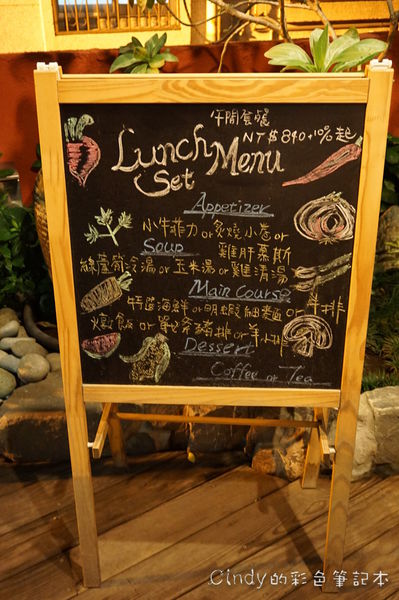 午間套餐
NT$ 840+10%起
Lunch Menu
Set
Appetizer
小牛菲力or炙燒小卷or
Soup 雞肝慕斯
綠蘆筍冷湯or玉米湯or雞清湯
Main Course
海鮮or明蝦細麵or羊排
燉飯or 豬排or羊小排
Dessert
Coffee or Tea
Cindy的彩色筆記本